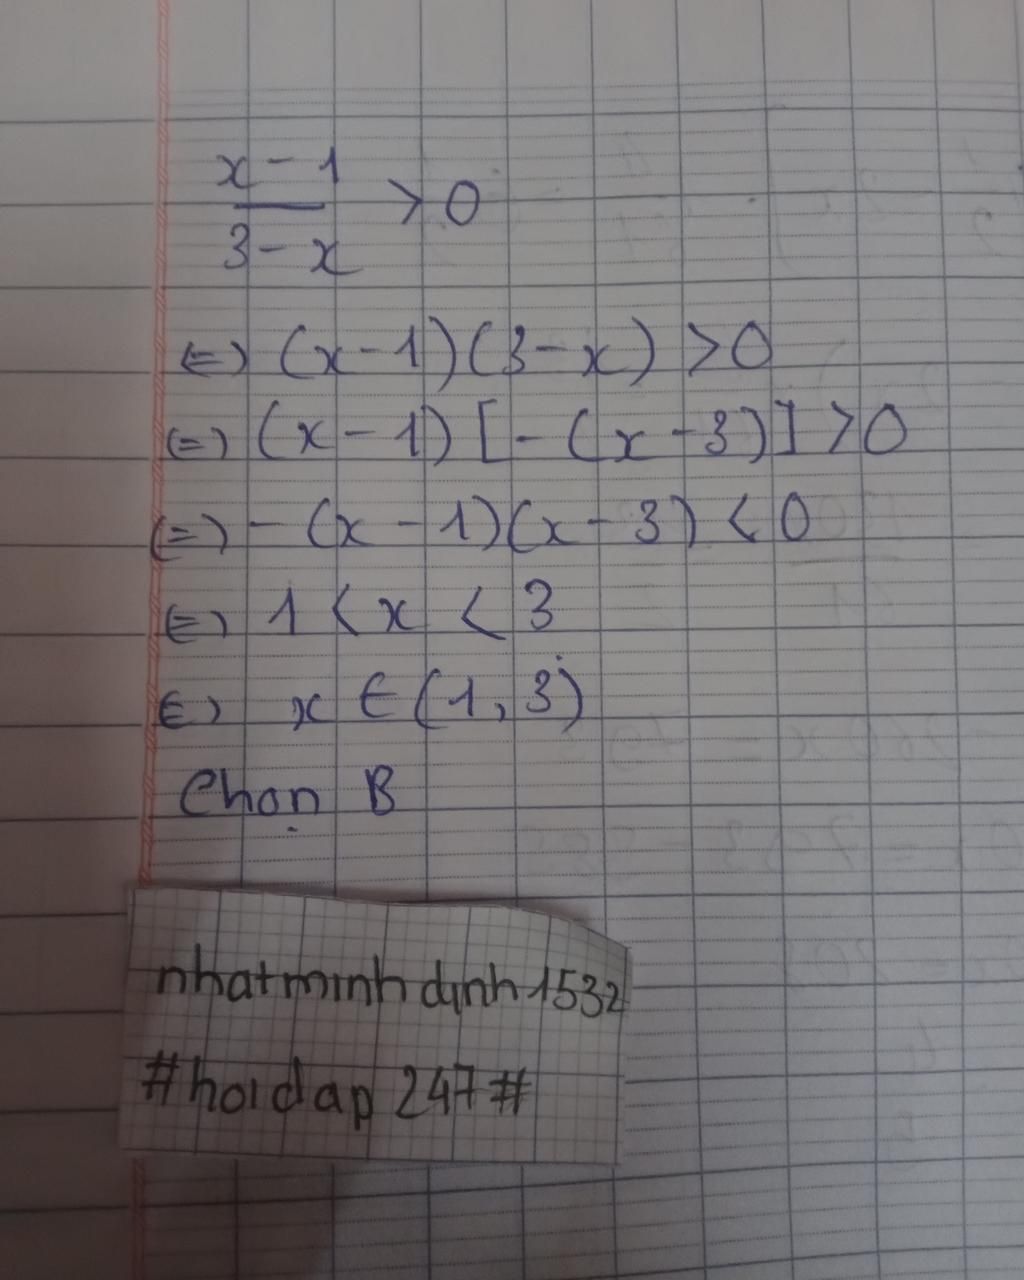 x - 1
——— > 0
3 - x
(=) (x - 1)(3 - x) > 0
(=) (x - 1) [- (x - 3)] > 0
(=) - (x - 1)(x - 3) < 0
(=) 1 < x < 3
(=) x ∈ (1, 3)
Chọn B
nhatminh dinh 1532
#hoidap 247#